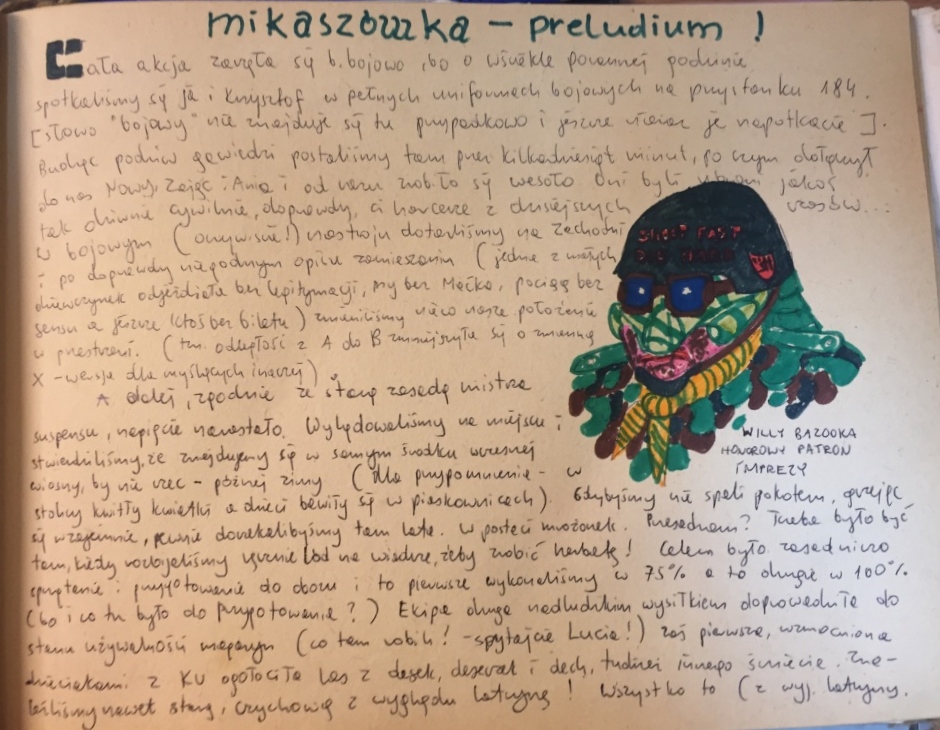 mikaszówka – preludium !
Cała akcja zaczęła się b. bojowo, bo o wściekle porannej godzinie
spotkaliśmy się ja i Krzysztof w pełnych uniformach bojowych na przystanku 184.
[słowo "bojowy" nie znajduje się tu przypadkowo i jeszcze nieraz je napotkacie].
Budząc podziw gawiedzi postaliśmy tam przez kilkadziesiąt minut, po czym dołączył
do nas Nowy, Zając i Ania i od razu zrobiło się wesoło. Oni byli ubrani jakoś
tak dziwnie cywilnie, doprawdy, ci harcerze z dzisiejszych czasów...
W bojowym (oczywiście!) nastroju dotarliśmy na Zachodni
i po doprawdy niegodnym opisu zamieszaniu (jedna z małych
dziewczynek odjeżdżała bez legitymacji, my bez Maćka, pociąg bez
sensu a jeszcze ktoś bez biletu) zmieniliśmy nieco nasze położenie
w przestrzeni. (tzn. odległość z A do B zmniejszyła się o zmienną
X - wersja dla myślących inaczej)
A dalej, zgodnie ze starą zasadą mistrza
suspensu, napięcie narastało. Wylądowaliśmy na miejscu i
stwierdziliśmy, że znajdujemy się w samym środku wczesnej
wiosny, by nie rzec - późnej zimy (dla przypomnienia - w
stolicy kwitły kwiatki a dzieci bawiły się w piaskownicach). Gdybyśmy nie spali pokotem, grzejąc
się wzajemnie, pewnie doczekalibyśmy tam lata w postaci mrożonek. Przesadzam? Trzeba było być
tam, kiedy rozbijaliśmy ręcznie lód na wiadrze, żeby zrobić herbatę! Celem było zasadniczo
sprzątanie i przygotowanie do obozu i to pierwsze wykonaliśmy w 75% a to drugie w 100%
(bo i co tu było do przygotowania?) Ekipa druga nadludzkim wysiłkiem doprowadziła do
stanu używalności magazyn (co tam robili! - spytajcie Lucia!) zaś pierwsza, wzmocniona
dzieciakami z KV ogołociła las z desek, deseczek i dech, tudzież innego śmiecia. Zna-
leźliśmy nawet starą, czychową z wyglądu latrynę! Wszystko to (z wyj. latryny,
SHOOT FAST
DIE
WILLY BAZOOKA
HONOROWY PATRON
IMPREZY